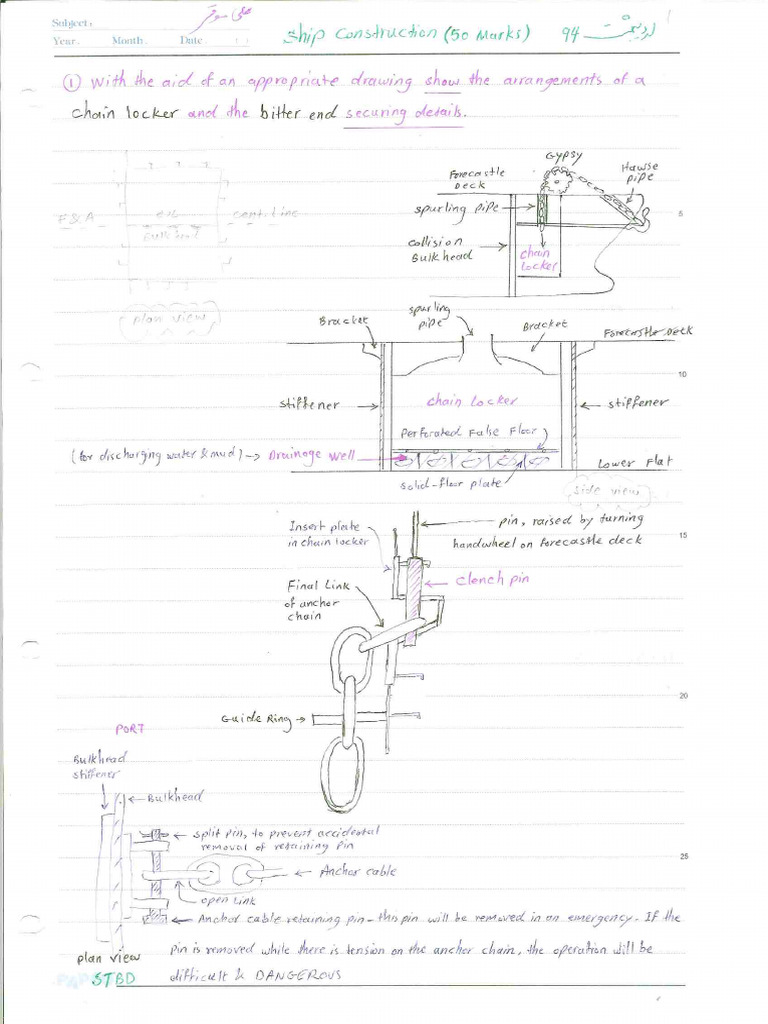 Subject:
علی موقر
Year. Month. Date.
Ship Construction (50 Marks) 94 اردیبهشت
1
① With the aid of an appropriate drawing show the arrangements of a
chain locker and the bitter end securing details.
Gypsy
Forecastle
Deck
Hawse
pipe
spurling pipe
5
F & A
centreline
collision
Bulkhead
chain
Locker
plan view
spurling
pipe
Bracket
Bracket
Forecastle Deck
10
stiffener
chain Locker
stiffener
perforated False Floor
(for discharging water & mud) → Drainage well
Lower Flat
solid-floor plate
side view
Insert plate
in chain locker
pin, raised by turning
handwheel on forecastle deck
15
clench pin
Final Link
of anchor
chain
20
Guide Ring
PORT
Bulkhead
stiffener
Bulkhead
split pin, to prevent accidental
removal of retaining pin
25
Anchor cable
open Link
Anchor cable retaining pin - this pin will be removed in an emergency. If the
plan view
pin is removed while there is tension on the anchor chain, the operation will be
STBD
difficult & DANGEROUS